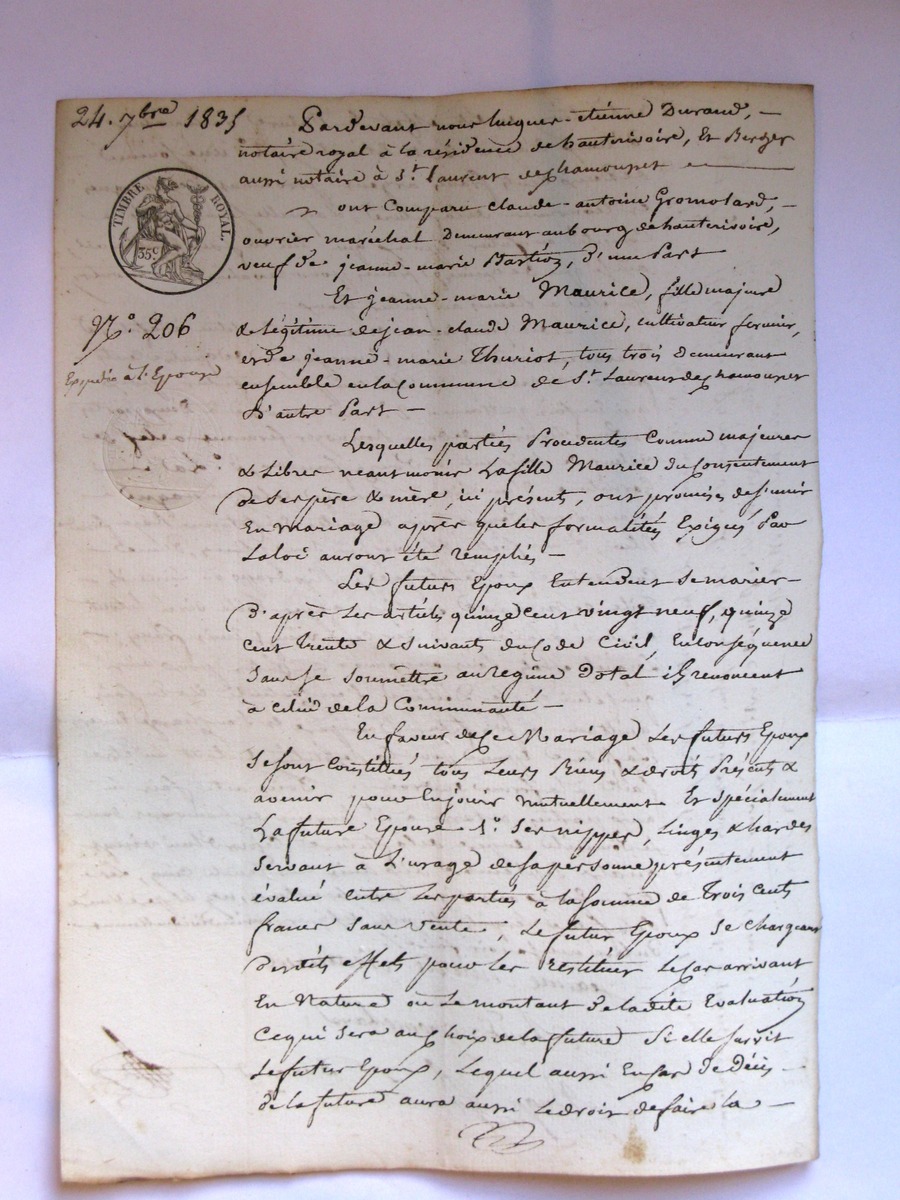 24. 7bre 1835
TIMBRE ROYAL.
35c
N.° 206
Expédié à l'Epouse
Pardevant nous hugues-étienne Durand, -
notaire royal à la résidence de hauterivoire, Et Berger
aussi notaire à St. Laurent de chamousset
ont Comparu claude-antoine Gromolard, -
ouvrier maréchal Demeurant au bourg de hauterivoire,
veuf de jeanne-marie, D'une Part
Et jeanne-marie Maurice, fille majeure
& légitime de jean-claude Maurice, cultivateur fermier,
et de jeanne-marie Thuriot, tous trois demeurant
ensemble en la Commune de St. Laurent de chamousset
D'autre Part -
Lesquelles parties Procédentes Comme majeures
& Libres néantmoins La fille Maurice du Consentement
de Ses père & mère, ici présents, ont promises de S'unir
En mariage après que les formalités Exigées Par
La loi auront été remplies -
Les futurs Epoux Entendent Se marier -
D'après Les articles quinze cent vingt neuf, quinze
cent trente & suivants du Code Civil, En Conséquence
Sans Se soumettre au régime Dotal ils renoncent
à Celui de la Communauté -
En faveur de Ce Mariage Les futurs Epoux
Se sont Constitués tous Leurs Biens & droits Présents &
avenir pour En jouir mutuellement Et Spécialement
La future Epouse 1.° Ses nippes, Linges & hardes
Servant à L'usage de Sa personne présentement
évalué entre Les parties à la Somme de Trois Cents
francs Sans Vente, Le futur Epoux Se Chargeant
Desdits effets pour Les restituer Le Cas arrivant
En Nature ou Le montant De ladite Evaluation
Ce qui Sera au Choix de la future Si elle Survit
Le futur Epoux, Lequel aussi En Cas De Décès -
de la future aura aussi Le droit de faire La -